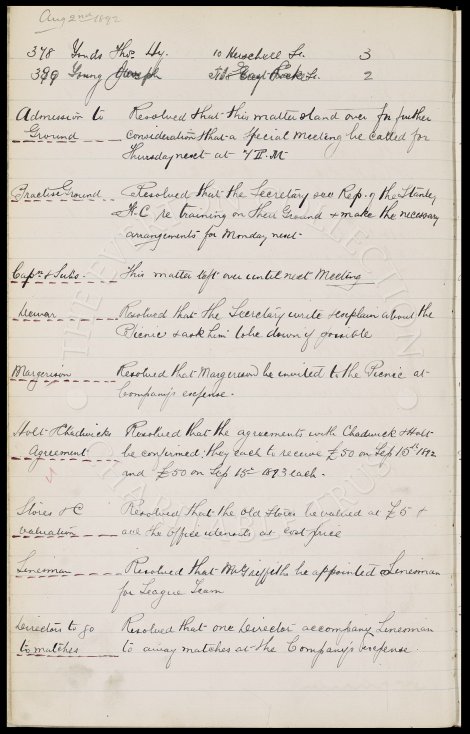 Aug 2nd 1892
398 Yonds Thos. Hy. 10 Herschell St. 3
399 Young Joseph St. 2
Admission to Resolved that this matter stand over for further
Ground consideration & that a special meeting be called for
Thursday next at 7 P.M
Practise Ground Resolved that the Secretary see Rep. of the Stanley
F.C re training on their Ground & make the necessary
arrangements for Monday next.
Capn & Subs This matter left over until next Meeting
Dewar Resolved that the Secretary write & explain about the
Picnic & ask him to be down if possible
Margerison Resolved that Margerison be invited to the Picnic at
Company's expense.
Holt & Chadwicks Resolved that the agreements with Chadwick & Holt
Agreement be confirmed: they each to receive £50 on Sep 15th 1892
and £50 on Sep 15th 1893 each.
Stores & C Resolved that the old stores be valued at £5 &
valuation the office utensils at cost price
Linesman Resolved that Mr Griffiths be appointed Linesman
for League Team
Directors to go Resolved that one Director accompany Linesman
to matches to away matches at the Company's Expense.
THE EVERTON COLLECTION
CHARITABLE TRUST